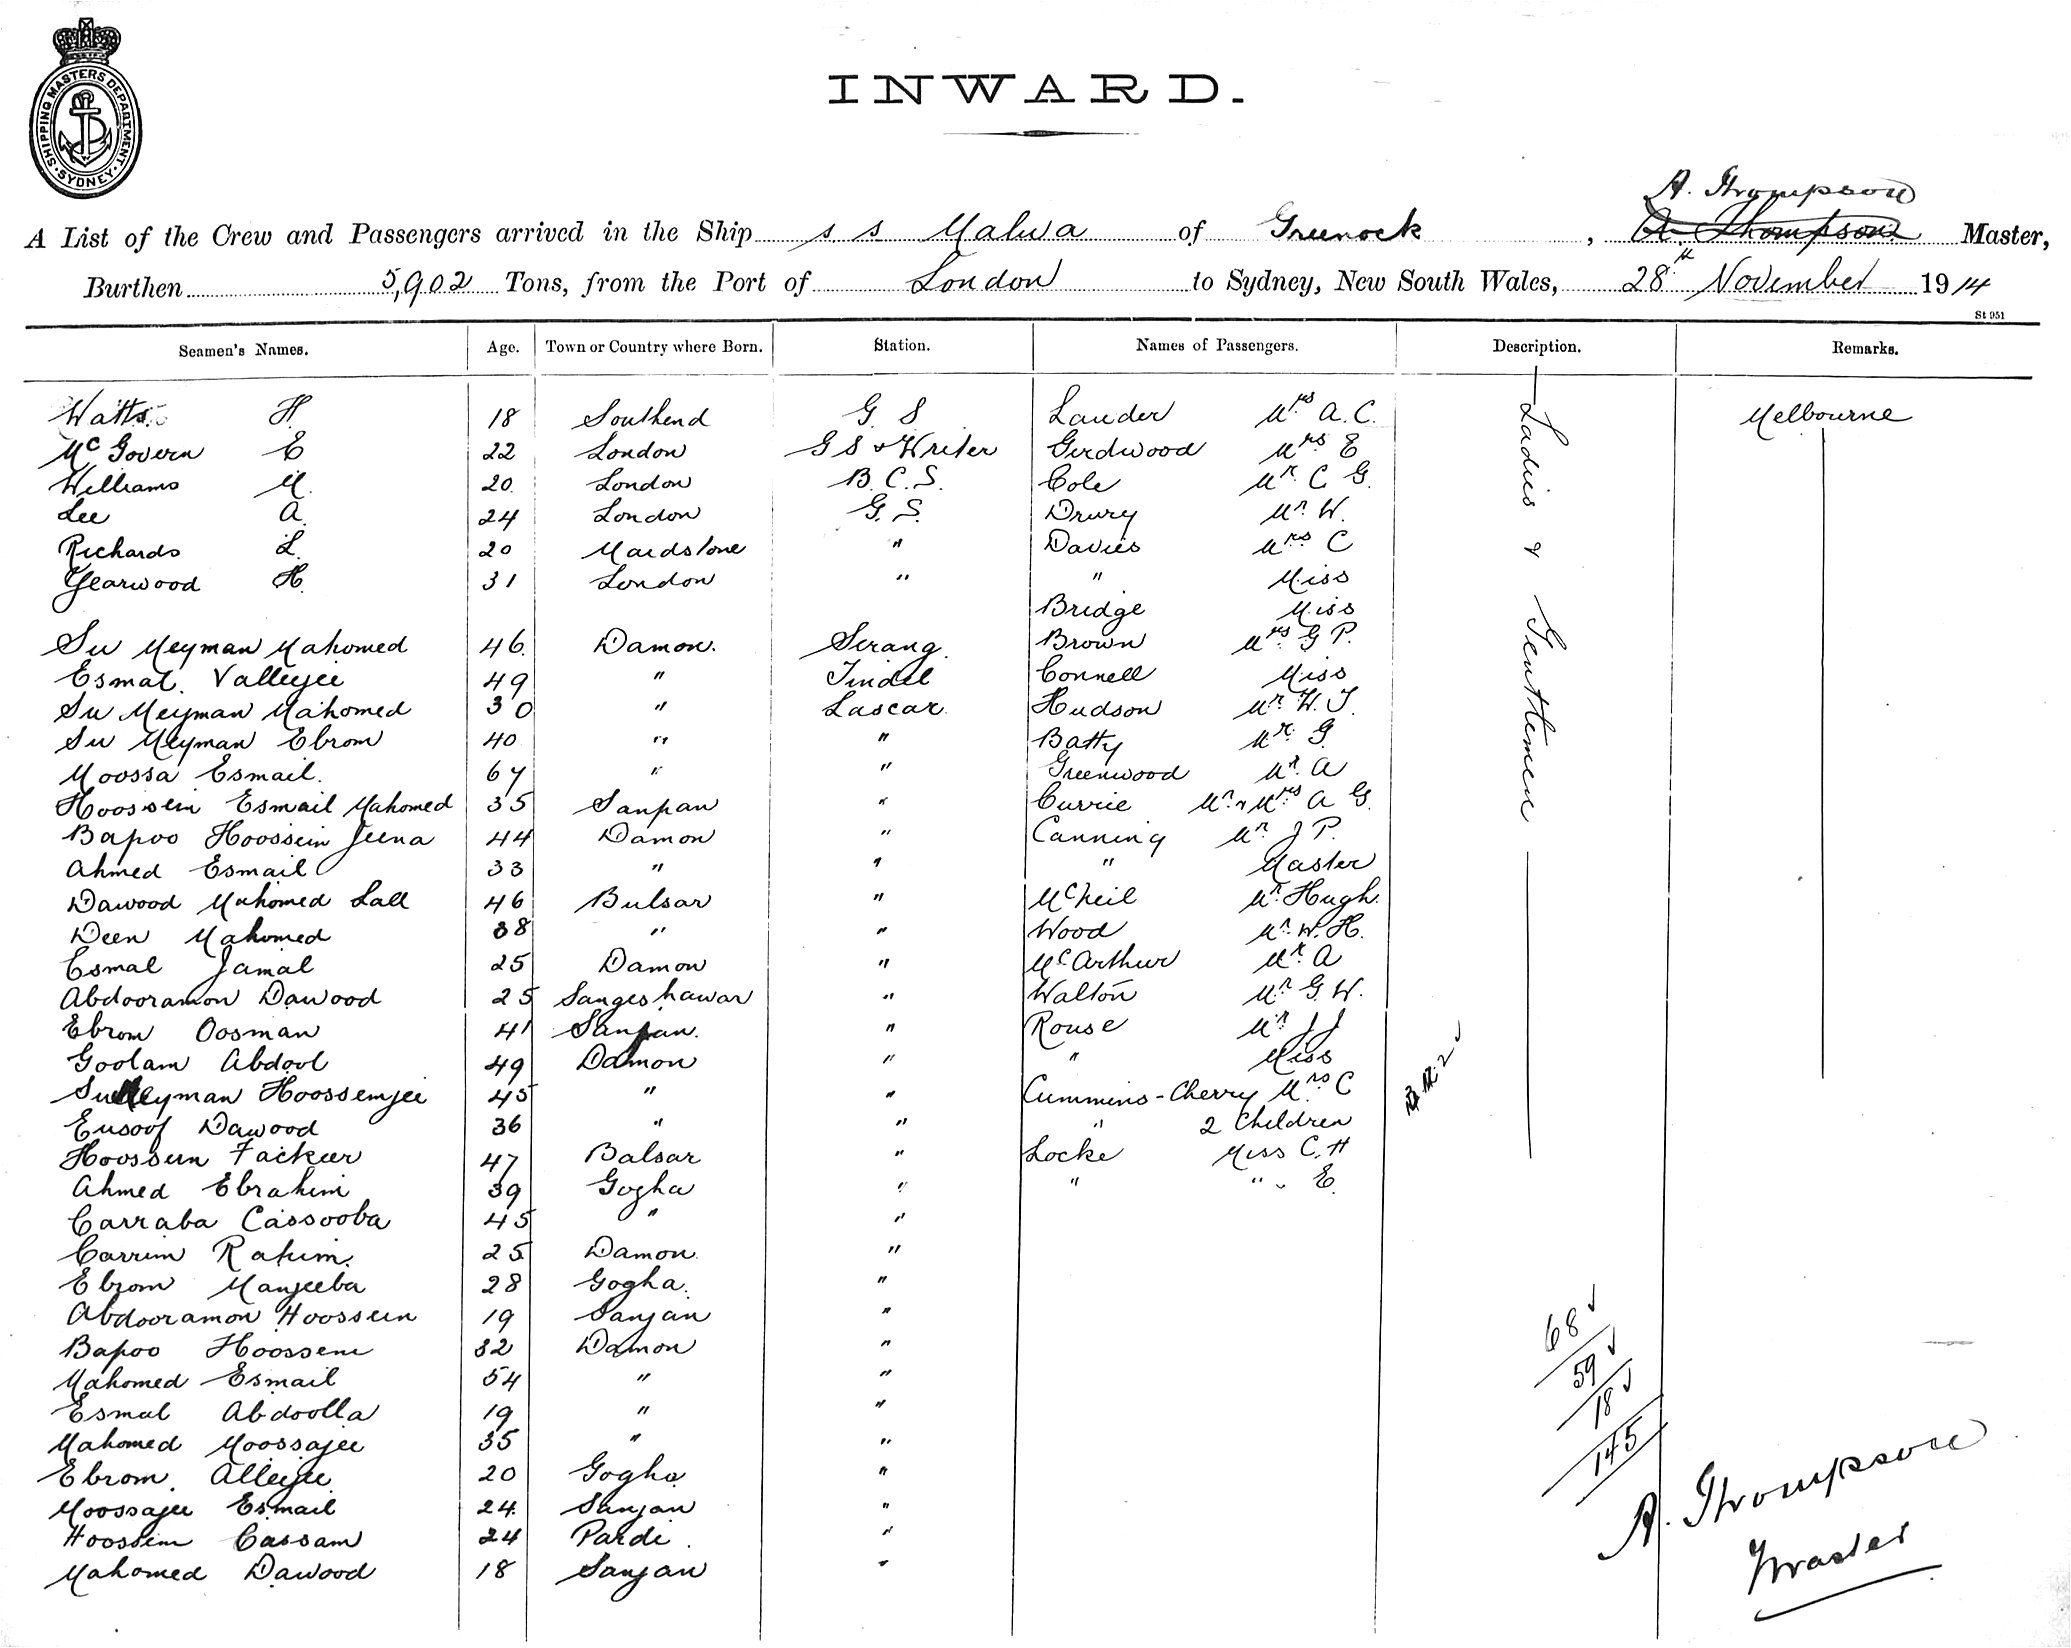 SHIPPING MASTERS DEPARTMENT. SYDNEY.
INWARD.
A. Thompson
A List of the Crew and Passengers arrived in the Ship s s Malwa of Greenock, A. Thompson Master,
Burthen 5,902 Tons, from the Port of London to Sydney, New South Wales, 28th November 1914
St 951
Seamen's Names. Age. Town or Country where Born. Station. Names of Passengers. Description. Remarks.
Watts H. 18 Southend G S Lauder Mrs A. C. Melbourne
McGovern E 22 London G S & Writer Girdwood Mrs E
Williams M. 20. London B. C. S. Cole Mr C G.
Lee A. 24 London G. S. Drury Mr W.
Richards L. 20 Maidstone " Davies Mrs C
Yearwood H. 31 London " " Miss
Bridge Miss
Su Meyman Mahomed 46. Damon. Serang. Brown Mrs G P.
Esmal. Valleyjee 49 " Tindel Connell Miss
Su Meyman Mahomed 30 " Lascar Hudson Mr W. J.
Su Meyman Ebrom 40 " " Batty Mr G.
Moossa Esmail. 67 " " Greenwood Mr. A
Hoossein Esmail Mahomed 35 Sanpan " Currie Mr & Mrs A G.
Bapoo Hoossein Jeena 44 Damon " Canning Mr J P.
Ahmed Esmail 33 " " " Master
Dawood Mahomed Lall 46 Bulsar " McNeil Mr Hugh.
Deen Mahomed 38 " " Wood Mr W. H.
Esmal Jamal 25 Damon " McArthur Mr A
Abdooramon Dawood 25 Sangeshawar " Walton Mr G. W.
Ebrom Oosman 41 Sanjan. " Rouse Mr J J
Goolam Abdool 49 Damon " " Miss
Suleyman Hoossemjee 45 " " Cummins-Cherry Mrs C
Eusoof Dawood 36 " " " 2 Children
Hoossein Fackeer 47 Balsar " Locke Miss C. H
Ahmed Ebrahim 39 Gogha " " " " E.
Carraba Cassooba 45 " "
Carrim Rahim. 25 Damon. "
Ebrom Manjeeba 28 Gogha. "
Abdooramon Hoossein 19 Sanjan "
Bapoo Hoossein 32 Damon "
Mahomed Esmail 54 " "
Esmal Abdoolla 19 " "
Mahomed Moossajee 35 " "
Ebrom. Alleyjee 20 Gogha "
Moossajee Esmail 24. Sanjan "
Hoossein Cassam 24 Pardi. "
Mahomed Dawood 18 Sanjan "
Ladies & Gentlemen
68
59
18
145
A. Thompson
Master